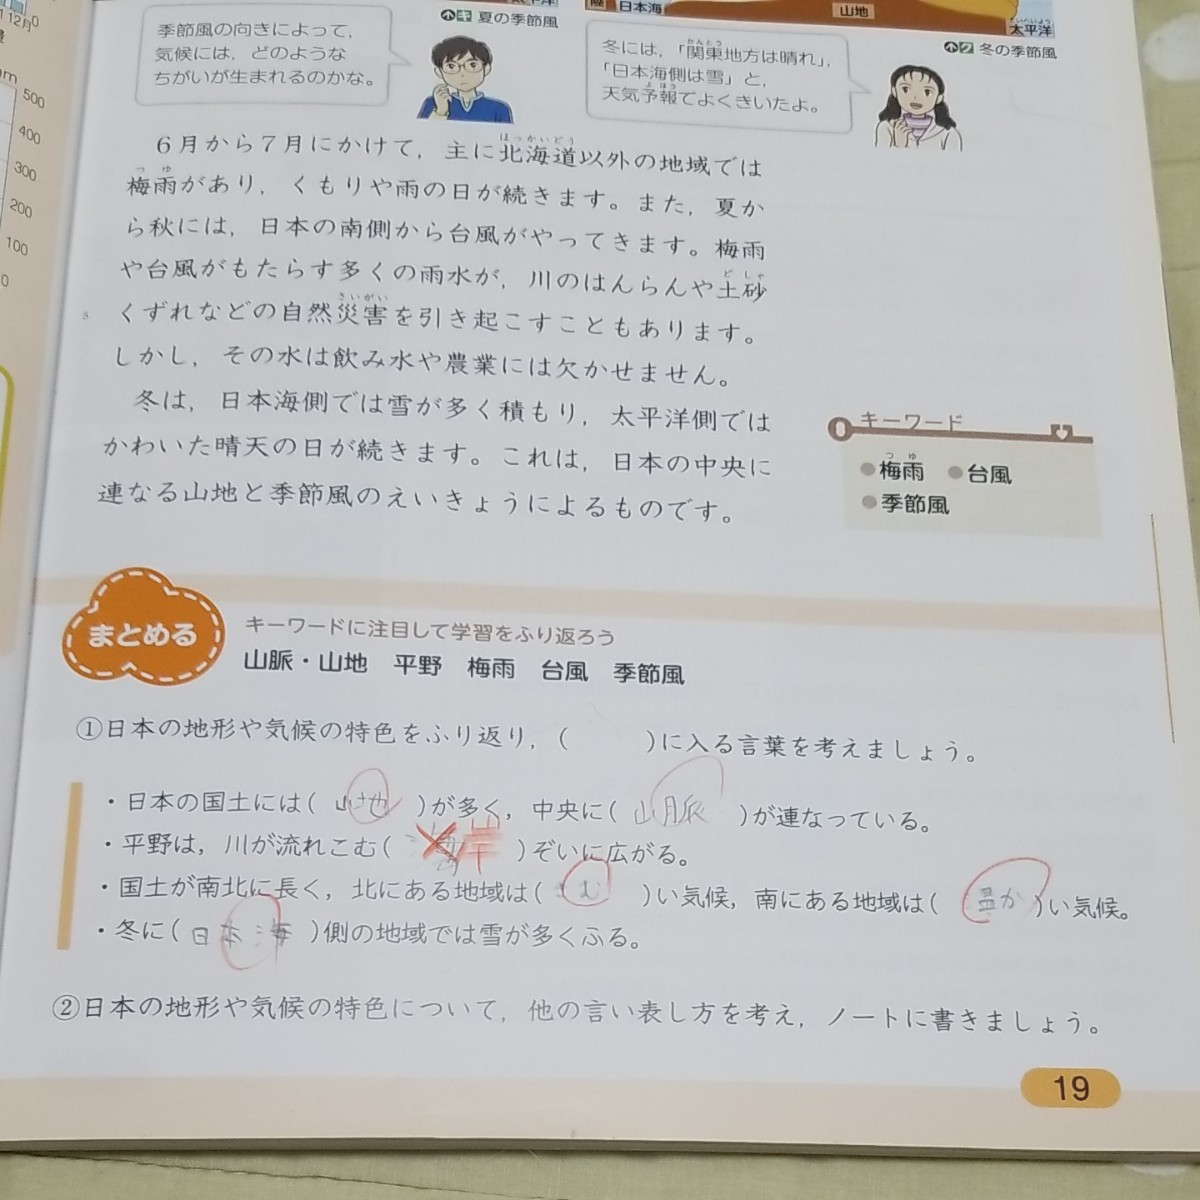 12月
500
400
300
200
100
0
陸 日本海
山地
太平洋
たいへいよう
キ 夏の季節風
ク 冬の季節風
季節風の向きによって,
気候には,どのような
ちがいが生まれるのかな。
冬には,「関東地方は晴れ」,
かんとう
「日本海側は雪」と,
天気予報でよくきいたよ。
よほう
6月から7月にかけて,主に北海道以外の地域では
ほっかいどう
梅雨があり,くもりや雨の日が続きます。また,夏か
つゆ
ら秋には,日本の南側から台風がやってきます。梅雨
や台風がもたらす多くの雨水が,川のはんらんや土砂
どしゃ
5
くずれなどの自然災害を引き起こすこともあります。
さいがい
しかし,その水は飲み水や農業には欠かせません。
冬は,日本海側では雪が多く積もり,太平洋側では
かわいた晴天の日が続きます。これは,日本の中央に
連なる山地と季節風のえいきょうによるものです。
キーワード
●梅雨 ●台風
つゆ
●季節風
まとめる
キーワードに注目して学習をふり返ろう
山脈・山地 平野 梅雨 台風 季節風
①日本の地形や気候の特色をふり返り,( )に入る言葉を考えましょう。
・日本の国土には( 山地 )が多く,中央に( 山脈 )が連なっている。
・平野は,川が流れこむ( 岸 )ぞいに広がる。
・国土が南北に長く,北にある地域は( さむ )い気候,南にある地域は( 温か )い気候。
・冬に( 日本海 )側の地域では雪が多くふる。
②日本の地形や気候の特色について,他の言い表し方を考え,ノートに書きましょう。
19